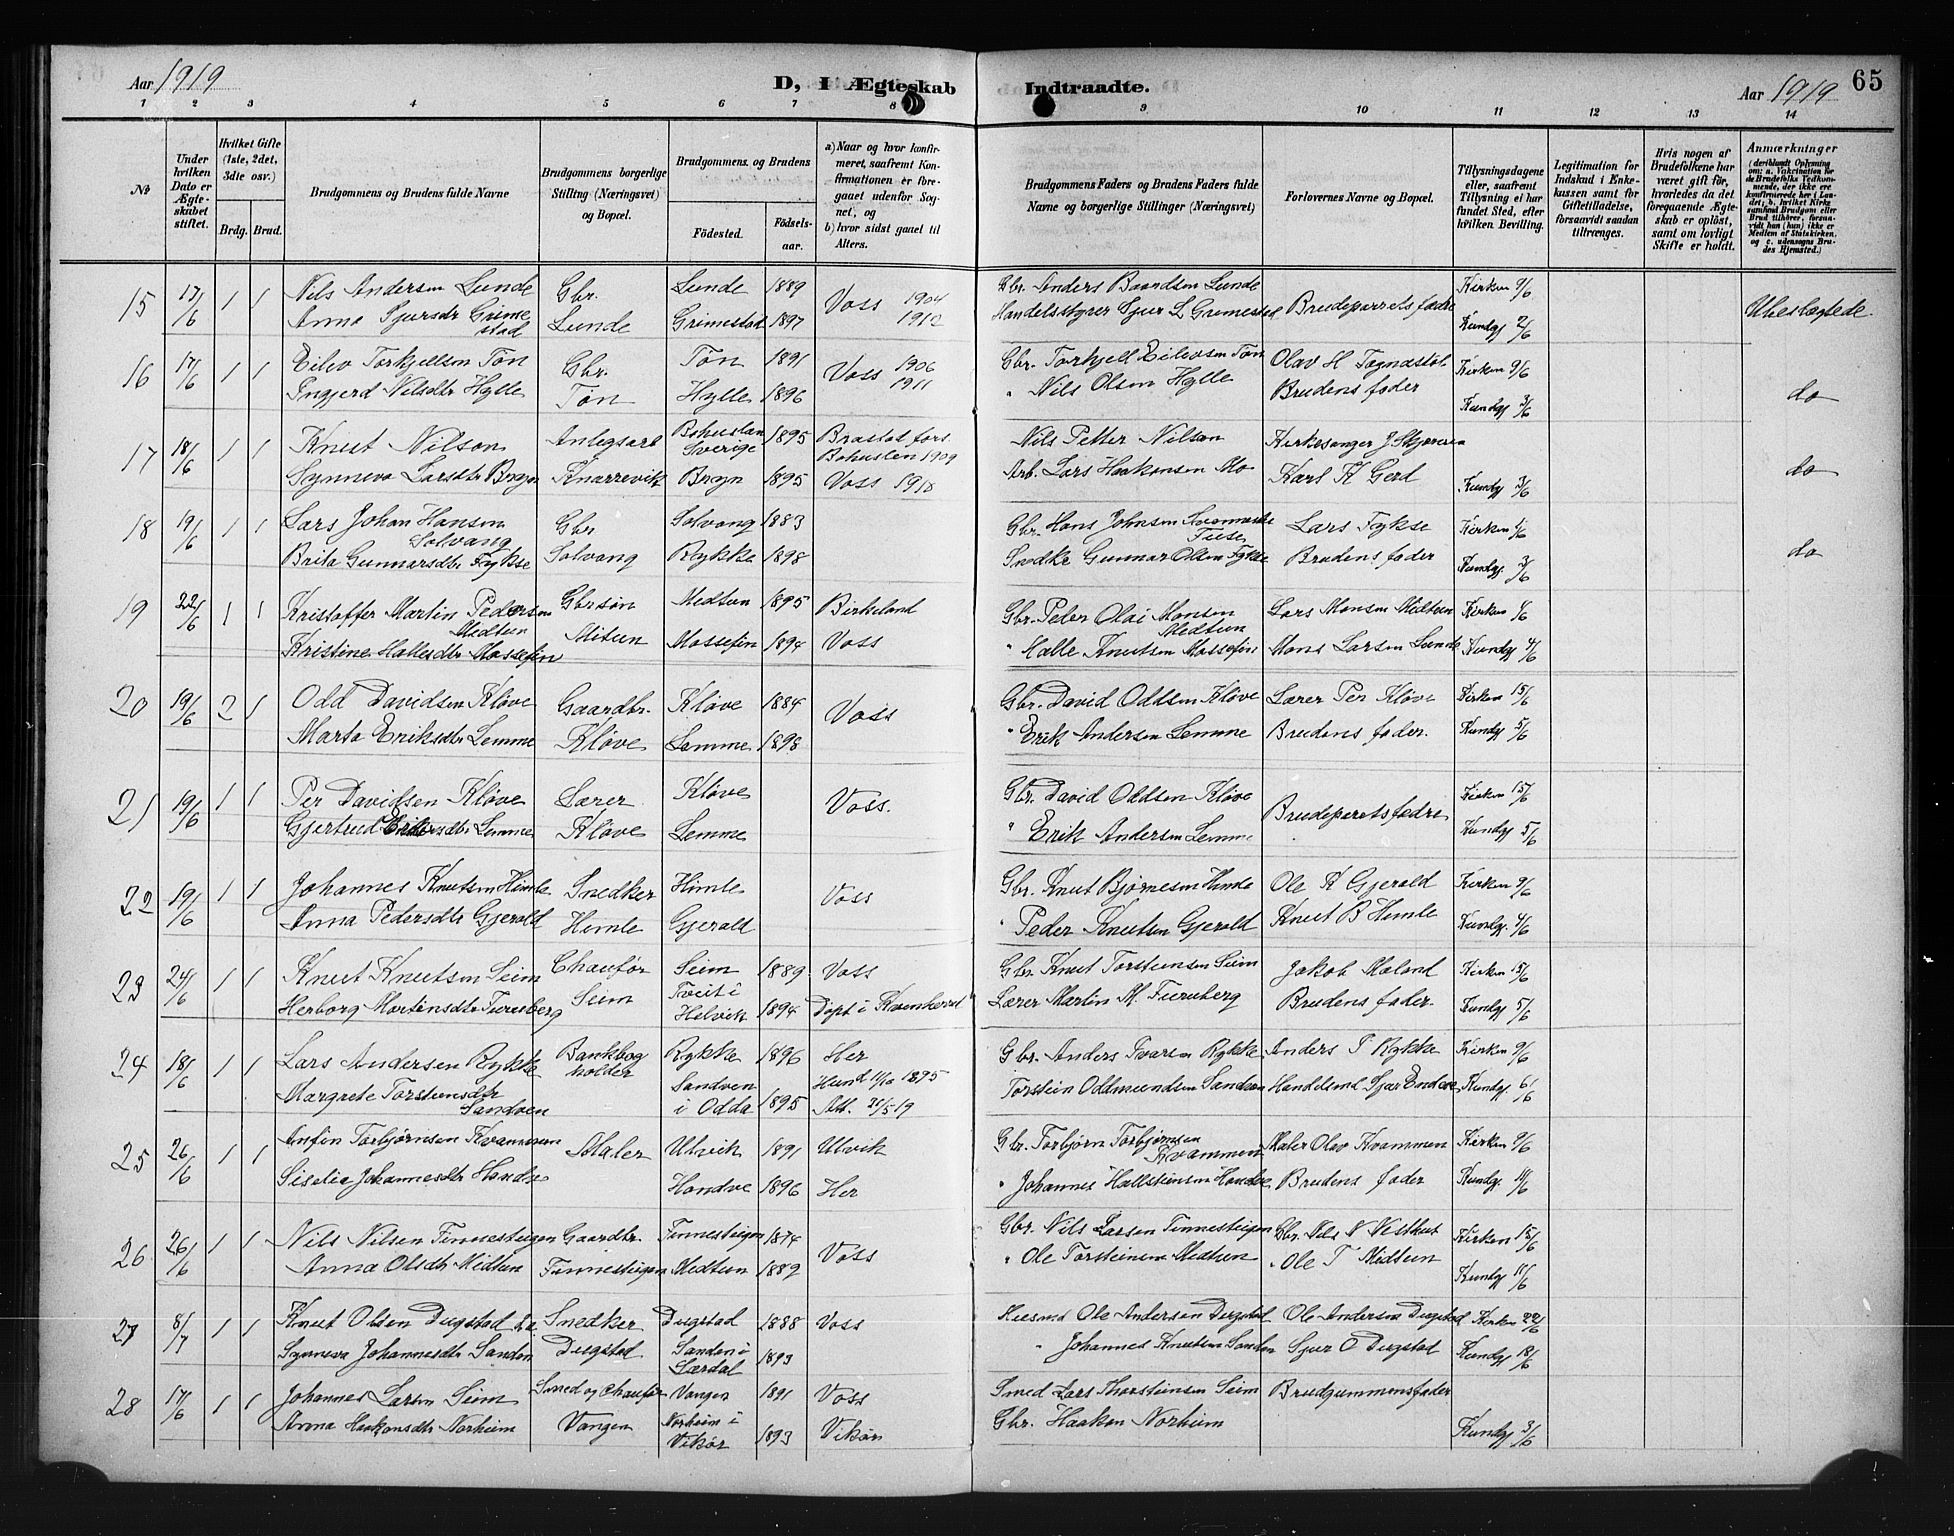 Aar 1919
D, I Ægteskab Indtraadte.
Aar 1919
65
1 2 3 4 5 6 7 8 9 10 11 12 13 14
No
Under hvilken Dato er Ægteskabet stiftet.
Hvilket Gifte (1ste, 2det, 3die osv.)
Brdg. Brud.
Brudgommens og Brudens fulde Navne
Brudgommens borgerlige Stilling (Næringsvei) og Bopæl.
Brudgommens og Brudens
Födested.
Födsels-aar.
a) Naar og hvor konfirmeret, saafremt Konfirmationen er foregaaet udenfor Sognet, og
b) hvor sidst gaaet til Alters.
Brudgommens Faders og Brudens Faders fulde Navne og borgerlige Stillinger (Næringsvei)
Forlovernes Navne og Bopæl.
Tillysningsdagene eller, saafremt Tillysning ei har fundet Sted, efter hvilken Bevilling.
Legitimation for Indskud i Enkekassen samt for Giftetilladelse, forsaavidt saadan tiltrænges.
Hvis nogen af Brudefolkene har været gift för, hvorledes da det foregaaende Ægteskab er oplöst, samt om lovligt Skifte er holdt.
Anmærkninger
15 17/6 1 1 Nils Andersen Lunde Gbr. Lunde 1889 Voss 1904 Gbr. Anders Baardsen Lunde Brudeparrets fædre Kirken 9/6 Ubeslægtede
Anna Sjursdtr Grimestad Lunde Grimestad 1897 1912 Handelsstyrer Sjur L Grimestad Kundgj 2/6
16 17/6 1 1 Eilev Torkjellsen Tøn Gbr. Tøn 1891 Voss 1906 Gbr. Torkjell Eilevsen Tøn Olav H Kirken 9/6 do
Ingjerd Nilsdtr Hylle Tøn Hylle 1896 1911 " Nils Olsen Hylle Brudens fader Kundgj 3/6
17 18/6 1 1 Knut Nilson Anlegsarb Bohuslän Sverige 1895 Bohuslen 1909 Nils Petter Nilson Kirkesanger J. do
Synneva Larsdtr Brynn Knarrevik Brynn 1895 Voss 1910 Arb. Lars Haakonsen Mo Karl K Gerd Kundgj 3/6
18 19/6 1 1 Lars Johan Hansen Solvang Gbr Solvang 1883 Gbr. Hans Johnsen Lars Fykse Kirken do
Brita Gunnarsdtr Fykse Solvang Rykke 1898 Snedke Gunnar Olsen Fykse Brudens fader Kundgj. 3/6
19 22/6 1 1 Kristoffer Martin Pedersen Midtun Gbr.søn Medtun 1895 Birkeland Gbr. Peder Olai Monsen Medtun Lars Monsen Midtun Kirken
Kristine Hallesdtr Møssefin Mitun Møssefin 1894 Voss " Halle Knutsen Møssefin Mons Larsen Lunde Kundgj 4/6
20 19/6 2 1 Odd Davidsen Kløve Gaardbr. Kløve 1884 Voss Gbr. David Oddsen Kløve Lærer Per Kløve Kirken 15/6
Marta Eriksdtr Lemme Kløve Lemme 1898 " Erik Andersen Lemme Brudens fader. Kundgj 5/6
21 19/6 1 1 Per Davidsen Kløve Lærer Kløve Voss. Gbr. David Oddsen Kløve Brudeparets fædre Kirken 15/6
Gjertrud Eriksdtr Lemme Kløve Lemme " Erik Andersen Lemme Kundgj 5/6
22 19/6 1 1 Johannes Knutsen Himle Snedker Himle Voss Gbr. Knut Bjørnesen Himle Ole K Gjerald Kirken 9/6
Anna Pedersdtr Gjerald Himle Gjerald " Peder Knutsen Gjerald Knut B Himle Kundgj. 4/6
23 24/6 1 1 Knut Knutsen Seim Chaufør Seim 1889 Voss Gbr. Knut Torsteinsen Seim Jakob Møland Kirken 15/6
Herborg Martinsdtr Furuberg Seim Tveit i Helvik 1894 Døpt i Kvinherad Lærer Martin M. Furuberg Brudens fader. Kundgj 5/6
24 18/6 1 1 Lars Andersen Rykke Bankbogholder Rykke 1896 Her Gbr. Anders Ivarsen Rykke Anders I Rykke Kirken 9/6
Margrete Torsteinsdtr Sandven Sandven i Odda 1895 1895 Att. 31/5 19 Torstein Oddmundsen Sandven Handelsmd Sjur Kundgj. 6/6
25 26/6 1 1 Anfin Torbjørnsen Kvammen Maler Ulvik 1891 Ulvik Gbr. Torbjørn Torbjørnsen Kvammen Maler Olav Kvammen Kirken 9/6
Siselia Johannesdtr Handve Handve 1896 Her " Johannes Hallsteinsen Handve Brudens fader Kundgj.
26 26/6 1 1 Nils Nilsen Finnesteigen Gaardbr. Finnesteigen 1874 Voss Gbr. Nils Larsen Finnesteigen Gbr. Nils N Kirken 15/6
Anna Olsdtr Midtun Finnesteigen Medtun 1889 " Ole Torsteinsen Medtun " Ole T Midtun Kundgj 11/6
27 8/7 1 1 Knut Olsen Dugstad Snedker Dugstad 1888 Voss Husmd Ole Andersen Dugstad Ole Andersen Dugstad Kirken 22/6
Synneva Johannesdtr Sanden Dugstad Sanden i Lærdal 1893 " Johannes Knutsen Sanden Sjur O Dugstad Kundgj 18/6
28 17/6 1 1 Johannes Larsen Seim Smed og Chaufør Vangen 1891 Voss Smed Lars Thorsteinsen Seim Brudgummens fader
Anna Haakonsdtr Norheim Vangen Norheim i Vikør 1893 Vikør Gbr. Haakon Norheim Kundgj 3/6